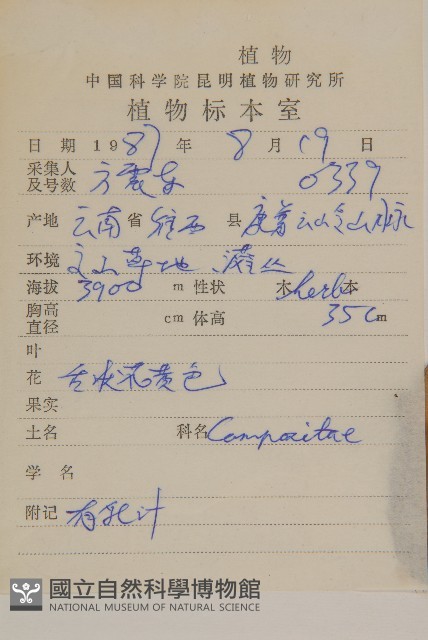 植物
中国科学院昆明植物研究所
植物标本室
日 期 1987 年 8 月 19 日
采集人及号数 方震东 0339
产地 云南 省 维西 县
环境 草地、灌丛
海拔 3900 m 性状 木herb本
胸高直径 cm 体高 35cm
叶
花 舌状花黄色
果实
土名 科名 Compositae
学 名
附记 有乳汁
國立自然科學博物館
NATIONAL MUSEUM OF NATURAL SCIENCE